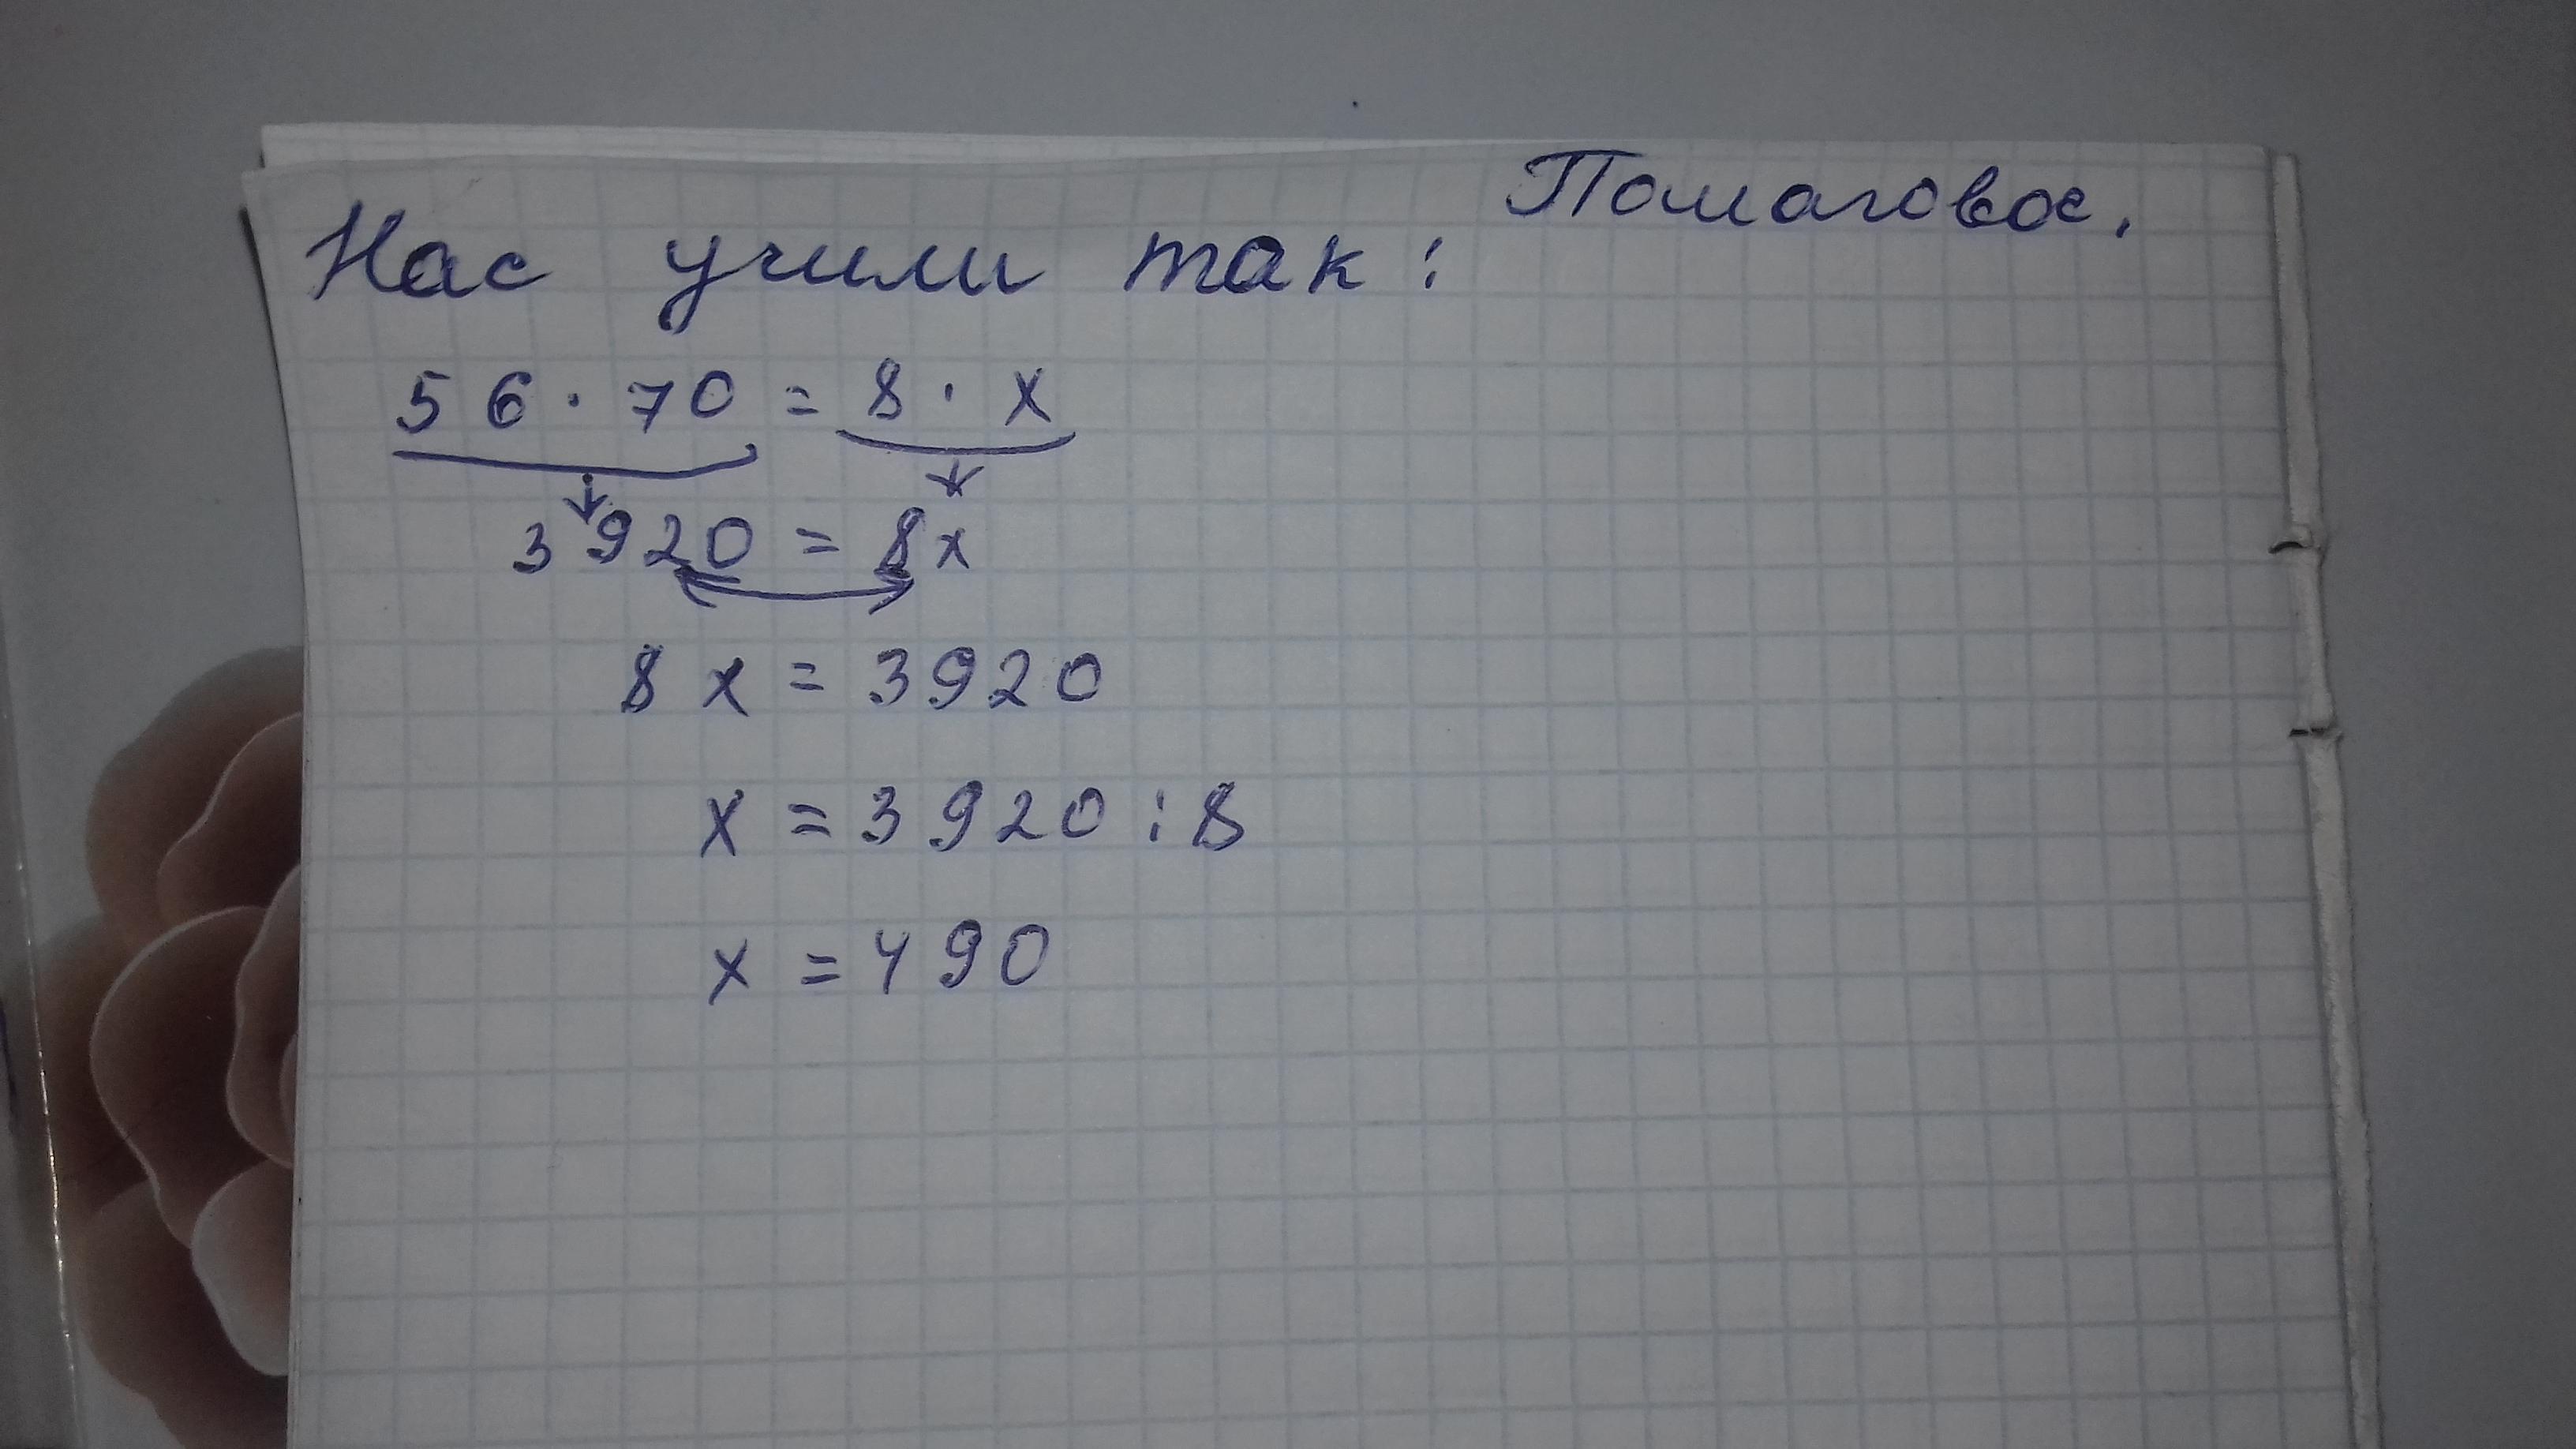 Помаговое.
Нас учили так:
56 · 70 = 8 · x
3920 = 8x
8x = 3920
x = 3920 : 8
x = 490